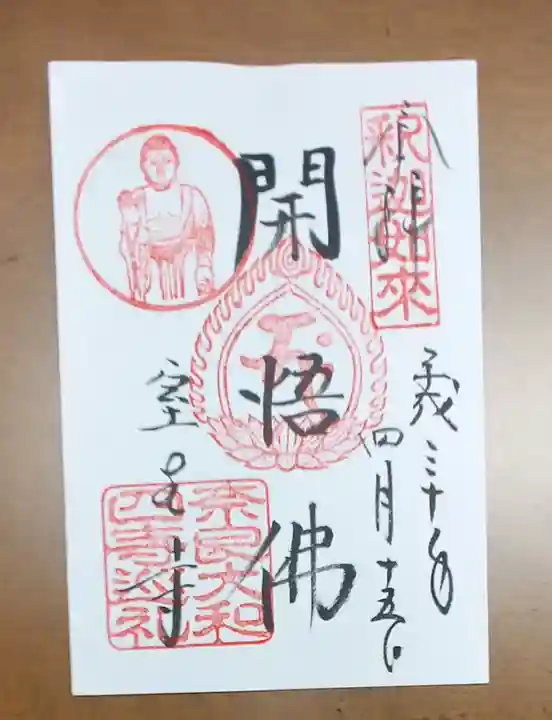 奉拝
釈迦如來
平成三十年
四月十五日
開悟佛
室生寺
奈良大和
四寺巡礼